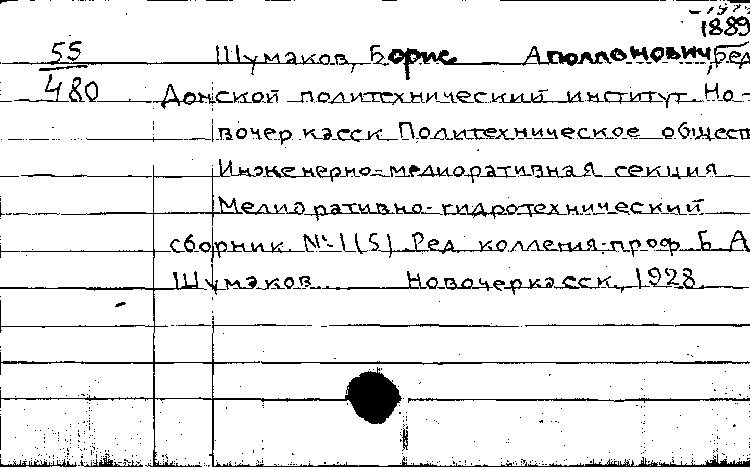 1889
55 Шумаков, Борис Аполлонович, Ред
480 Донской политехнический институт. Но-
вочеркасск Политехническое общест
Инженерно-мелиоративная секция
Мелиоративно-гидротехнический
сборник. № 1 (5). Ред. коллегия: проф. Б. А.
Шумаков... Новочеркасск, 1928